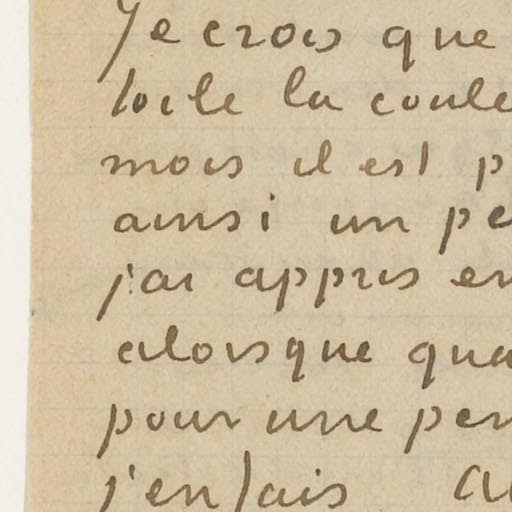 Je crois que
toile la coule
mois il est p
ainsi un pe
j'ai appris en
alorsque qua
pour une per
j'en fais a